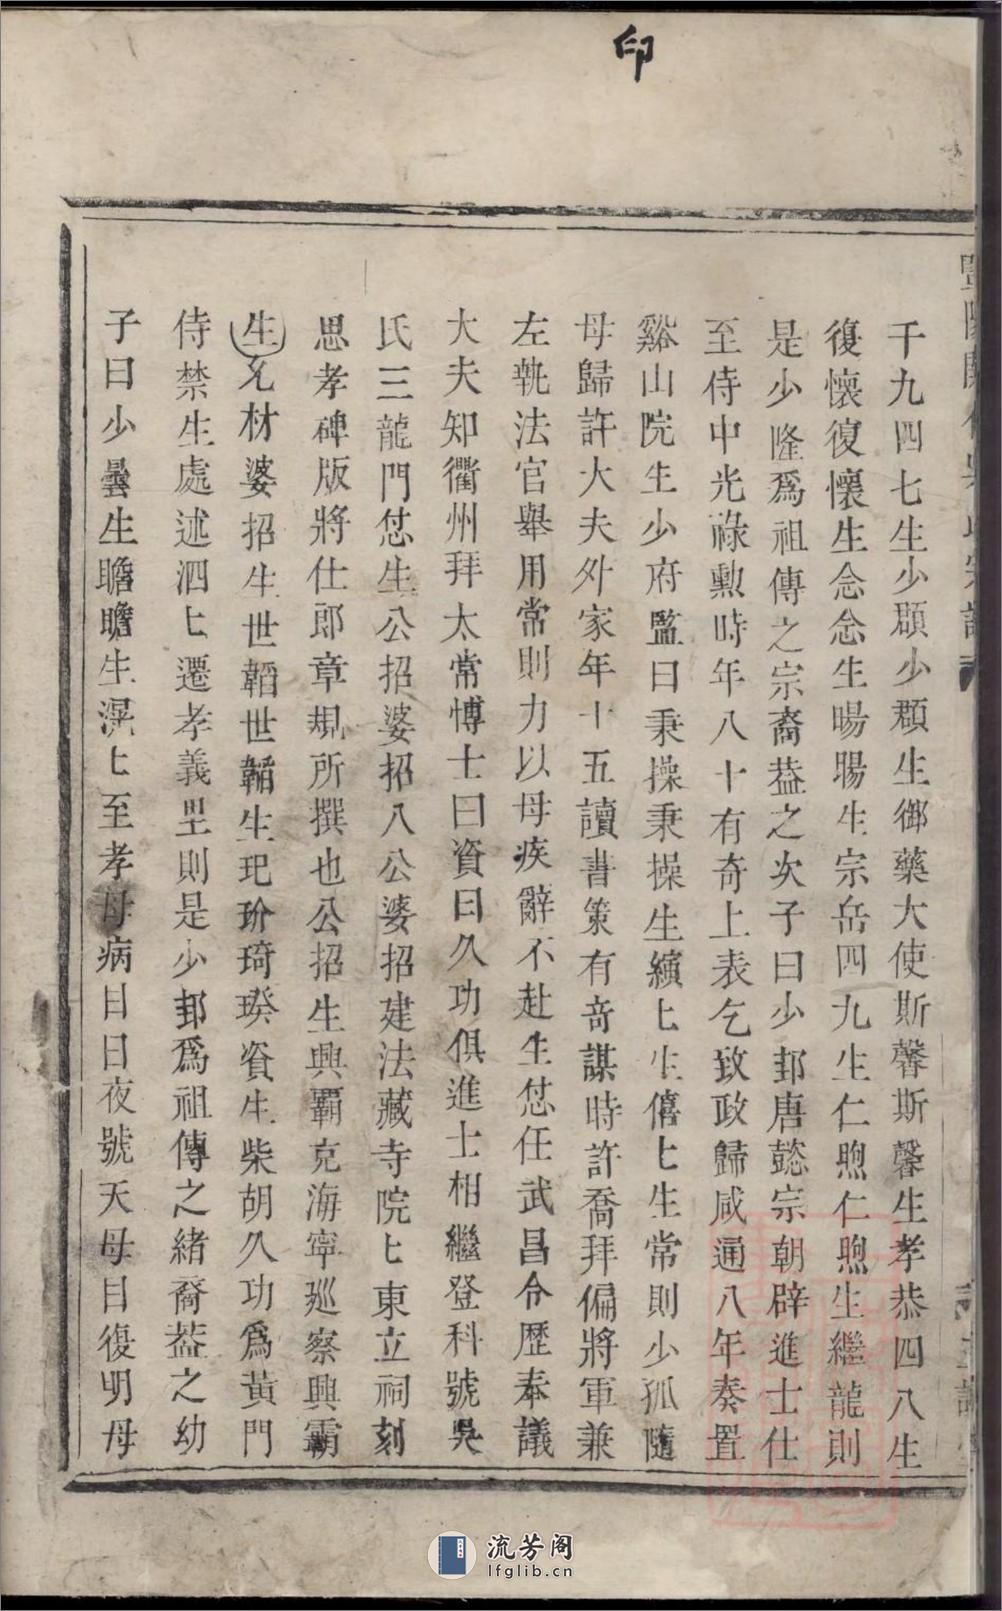 印
千九四七生少頵少頵生御藥大使斯馨斯馨生孝恭四八生
復懷復懷生念念生暘暘生宗岳四九生仁煦仁煦生繼龍則
是少隆爲祖傳之宗裔葢之次子曰少邽唐懿宗朝辟進士仕
至侍中光祿勲時年八十有奇上表乞致政歸咸通八年奏置
谿山院生少府監曰秉操秉操生縯七生僖七生常則少孤隨
母歸許大夫外家年十五讀書策有奇謀時許喬拜偏將軍兼
左執法官舉用常則力以母疾辭不赴生怤任武昌令歷奉議
大夫知衢州拜太常博士曰資曰久功俱進士相繼登科號吳
氏三龍門怤生公招婆招八公婆招建法藏寺院七東立祠刻
思孝碑版將仕郎章規所撰也公招生興霸克海寧巡察興霸
生允材婆招生世韜世韜生玘玠琦璞資生柴胡久功爲黃門
侍禁生處述泗七遷孝義里則是少邽爲祖傳之緒裔葢之幼
子曰少曇生瞻瞻生滉七至孝母病目日夜號天母目復明母
流芳阁
lfglib.cn